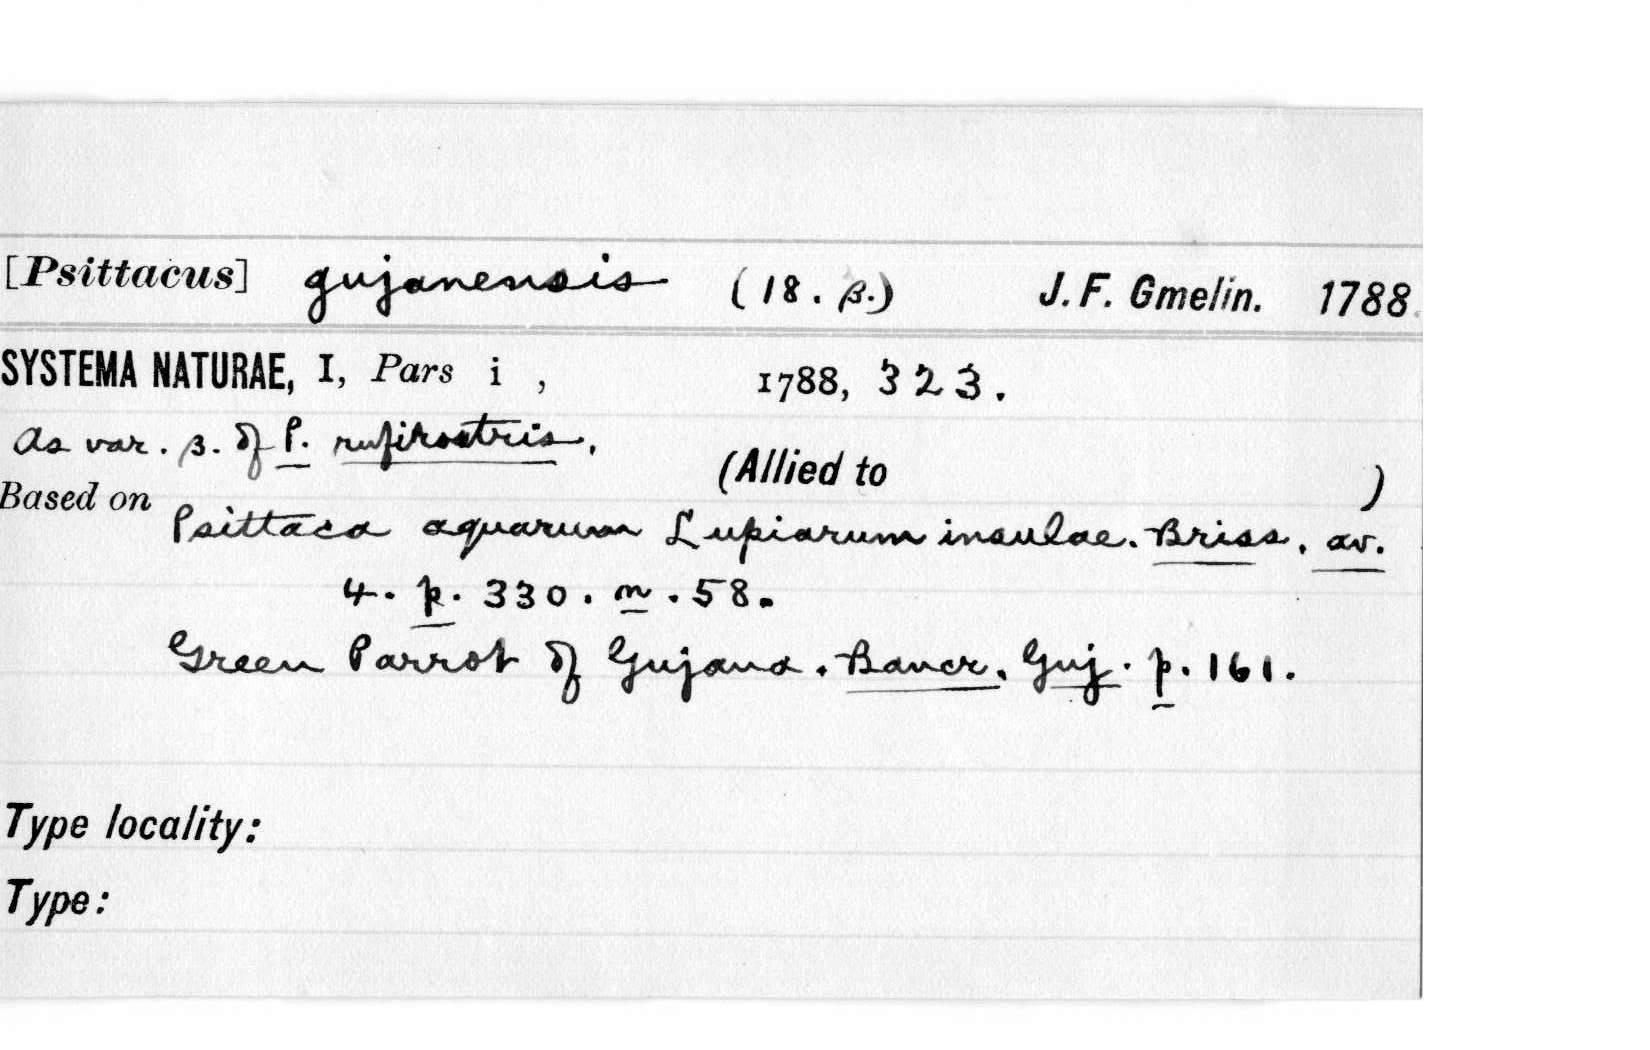 [Psittacus] gujanensis (18. β.) J. F. Gmelin. 1788.
SYSTEMA NATURAE, I, Pars i , 1788, 323.
As var. β. of P. rufirostris.
(Allied to )
Based on
Psittaca aquarum Lupiarum insulae. Briss. av.
4. p. 330. n. 58.
Green Parrot of Gujana. Bancr. Guj. p. 161.
Type locality:
Type: